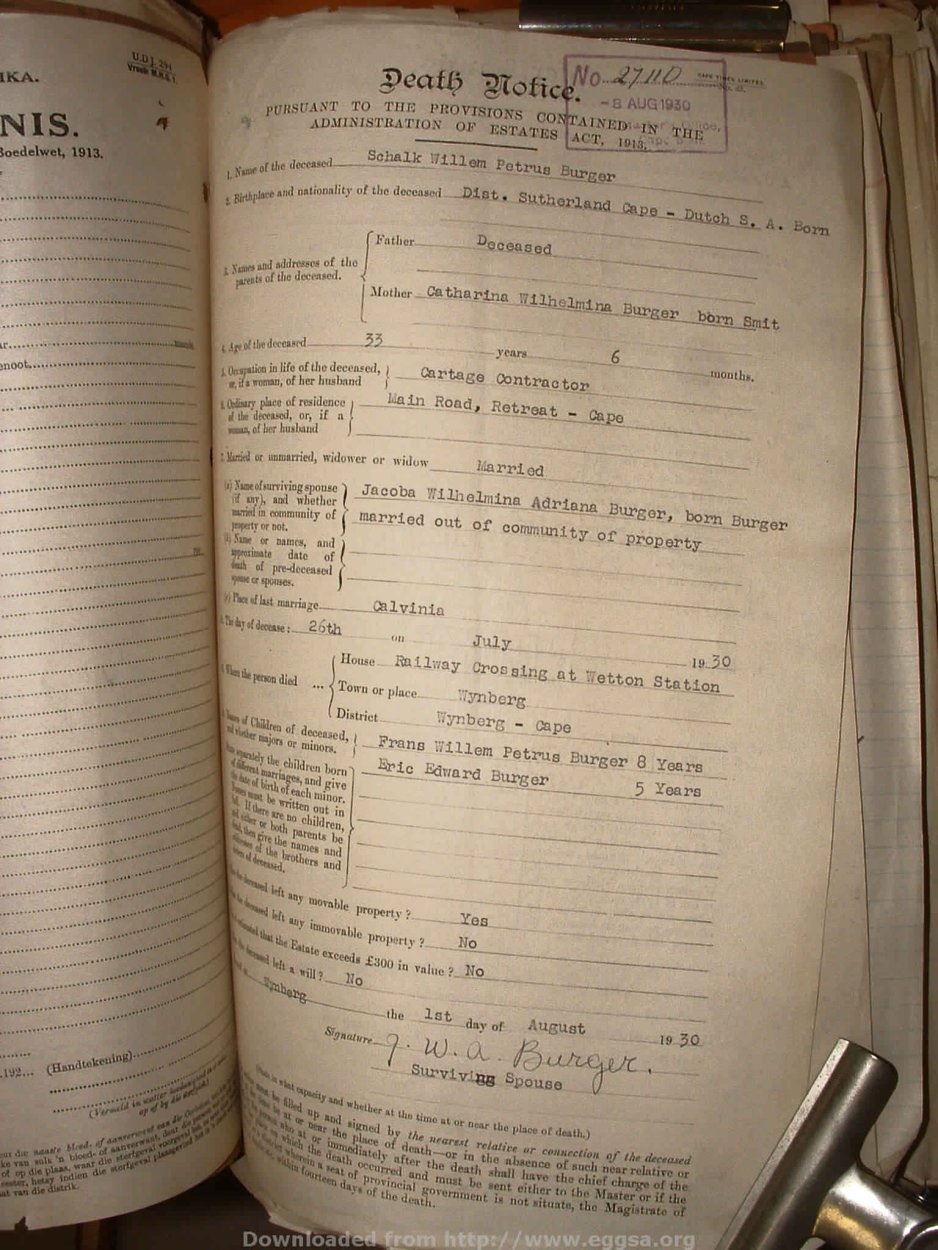 U.D.J. 294
IKA.
NIS.
Boedelwet, 1913.
(Handtekening)
192...
Death Notice.
No. 27110
CAPE TIMES LIMITED
-8 AUG 1930
PURSUANT TO THE PROVISIONS CONTAINED IN THE
ADMINISTRATION OF ESTATES ACT, 1913.
1. Name of the deceased Schalk Willem Petrus Burger
2. Birthplace and nationality of the deceased Dist. Sutherland Cape - Dutch S. A. Born
3. Names and addresses of the parents of the deceased.
Father Deceased
Mother Catharina Wilhelmina Burger born Smit
4. Age of the deceased 33 years 6 months.
5. Occupation in life of the deceased, or, if a woman, of her husband
Cartage Contractor
6. Ordinary place of residence of the deceased, or, if a woman, of her husband
Main Road, Retreat - Cape
7. Married or unmarried, widower or widow Married
(a) Name of surviving spouse (if any), and whether married in community of property or not.
Jacoba Wilhelmina Adriana Burger, born Burger
married out of community of property
(b) Name or names, and approximate date of death of pre-deceased spouse or spouses.
(c) Place of last marriage Calvinia
The day of decease: 26th on July 1930
Where the person died ...
House Railway Crossing at Wetton Station
Town or place Wynberg
District Wynberg - Cape
Names of Children of deceased, and whether majors or minors.
Frans Willem Petrus Burger 8 Years
Eric Edward Burger 5 Years
separately the children born
of different marriages, and give
the date of birth of each minor.
must be written out in
full. If there are no children,
and either or both parents be
dead, then give the names and
addresses of the brothers and
sisters of deceased.
the deceased left any movable property? Yes
the deceased left any immovable property? No
estimated that the Estate exceeds £300 in value? No
the deceased left a will? No
Wynberg
the 1st day of August 1930
Signature J. W. A. Burger.
Surviving Spouse
(State in what capacity and whether at the time at or near the place of death.)
must be filled up and signed by the nearest relative or connection of the deceased
be at or near the place of death—or in the absence of such near relative or
who at or immediately after the death shall have the chief charge of the
in which the death occurred and must be sent either to the Master or if the
wherein a seat of provincial government is not situate, the Magistrate of
within fourteen days of the death.
Downloaded from http://www.eggsa.org